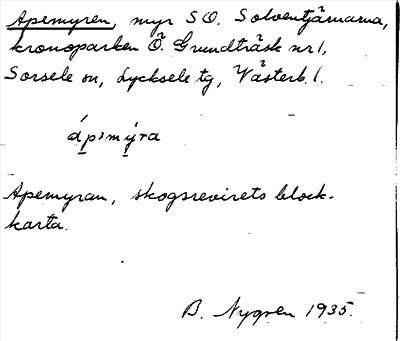 Apemyren, myr SO. Solventjärnarna,
kronoparken Ö. Grundträsk nr 1,
Sorsele sn, Lycksele tg, Västerb. l.
ápəmỳra
Apemyran, skogsrevirets block-
karta.
B. Nygren 1935.